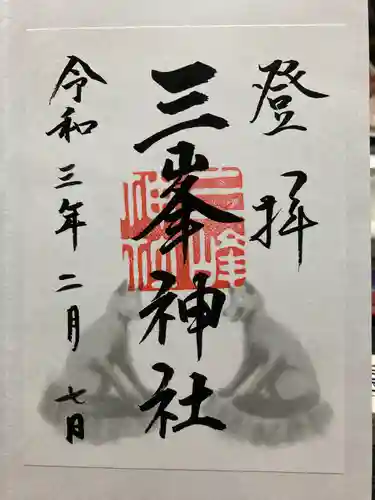 登拝
三峯神社
令和三年二月七日